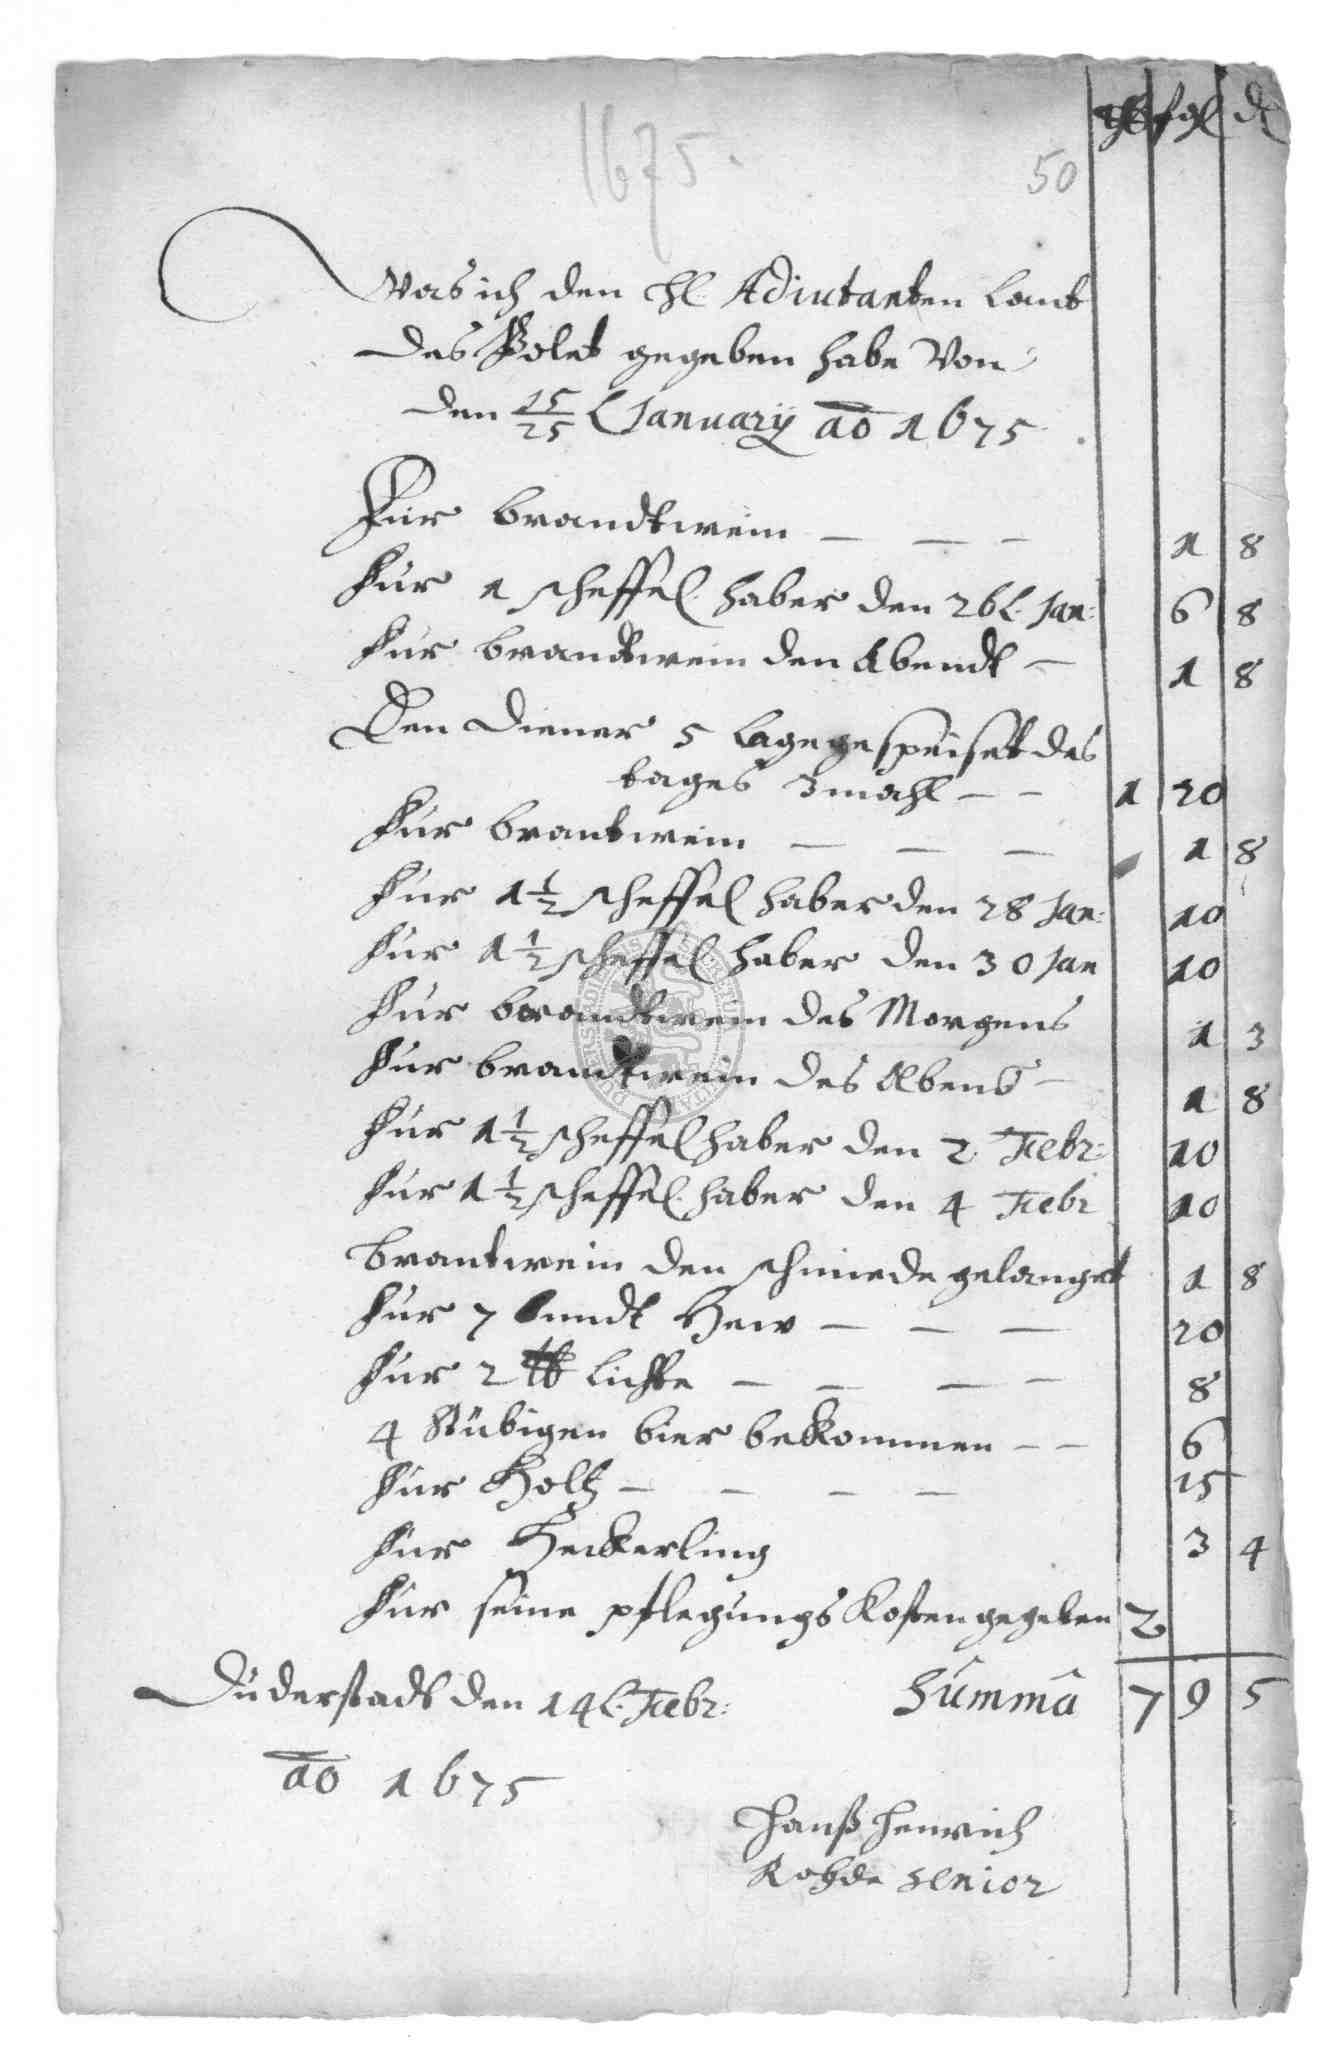 rth sgl d
1675.
50
Was ich den Hl. Adiutanten laut
des Bolet gegeben habe Von
den 15/25 January ao 1675.
Fur brandtwein — — — 1 8
Fur 1 scheffel haber den 26t. Jan: 6 8
Fur brandtwein den Abendt — 1 8
Den Diener 5 tage gespeiset des
tages 3 mahl — — 1 20
Fur brantwein — — — 1 8
Fur 1½ scheffel haber den 28 Jan: 10
Fur 1½ scheffel haber den 30 Jan 10
Fur brandtwein des Morgens 1 3
Fur brandtwein des Abens — 1 8
Fur 1½ scheffel haber den 2. Febr: 10
Fur 1½ scheffel haber den 4 Febr 10
brantwein den schmiede gelanget 1 8
Fur 7 bundt Hew — — — 20
Fur 2 ℔ lichte — — — — 8
4 Stübigen bier bekommen — — 6
Fur Holtz — — — — 15
Fur Heckerling 3 4
Fur seine pflegungs Kosten gegeben 2
Duderstadt den 14t. Febr: Summa 7 9 5
ao 1675
Hanß Henrich
Rohde senior